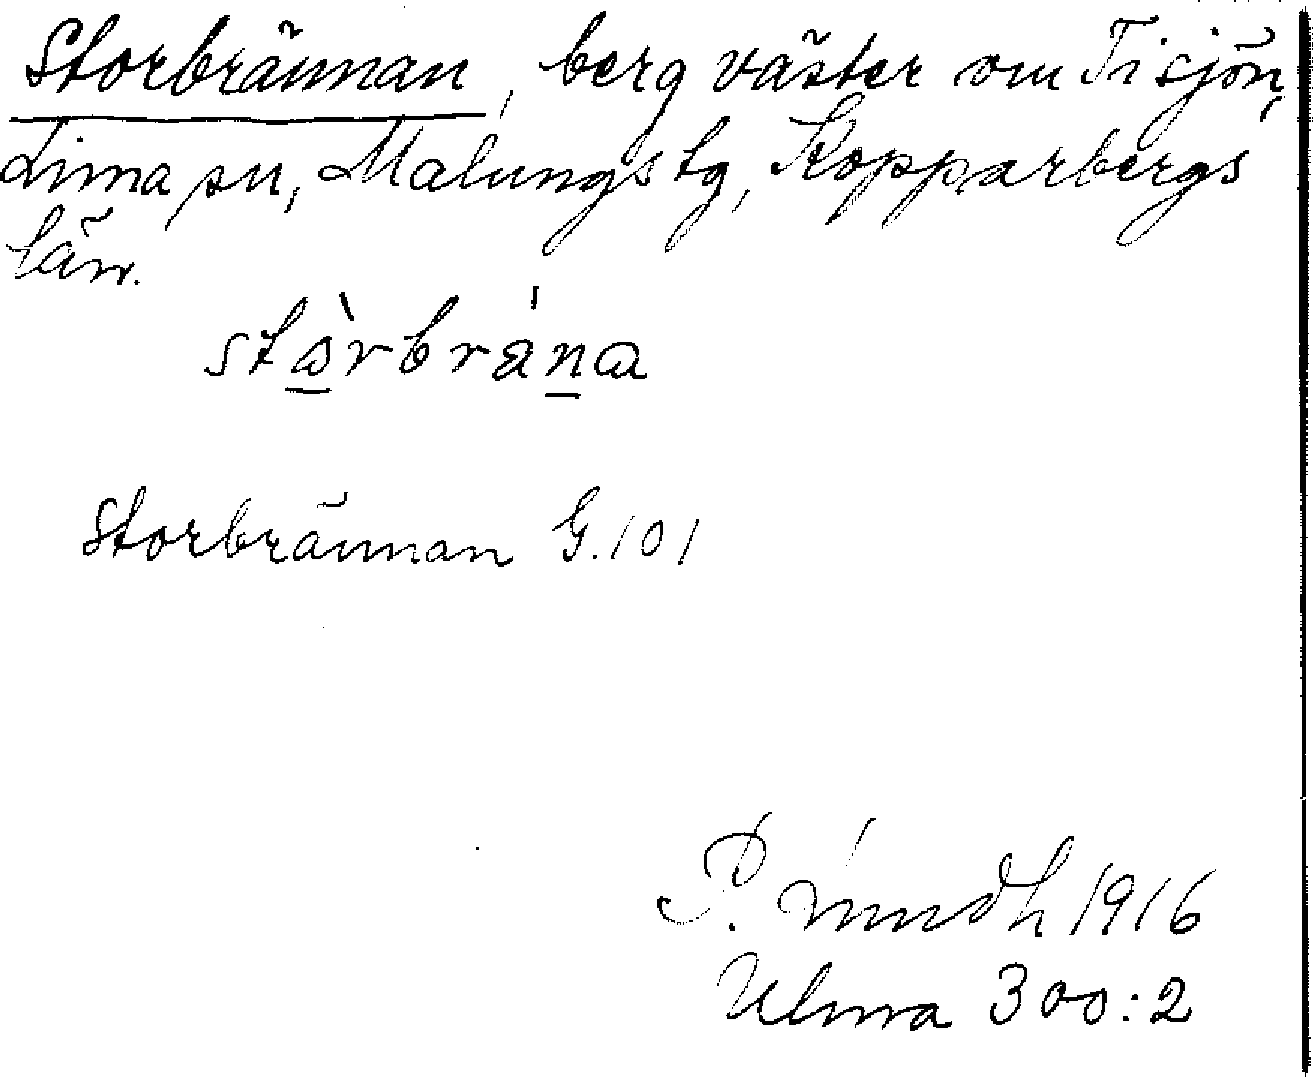 Storbrännan, berg väster om Tisjön,
Lima sn, Malungs tg, Kopparbergs
län.
stòrbrána
Storbrännan G.101
P. 1916
Ulma 300:2